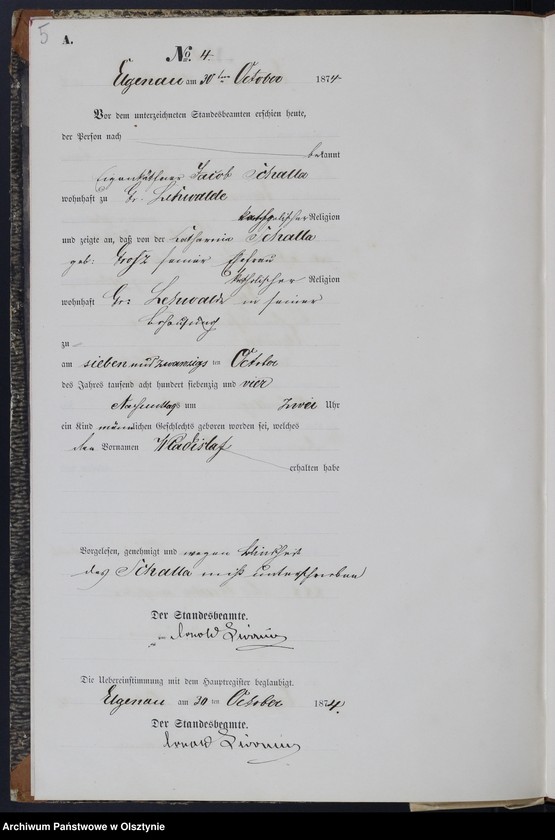 5
A.
No. 4.
Elgenau am 30ten October 1874
Vor dem unterzeichneten Standesbeamten erschien heute,
der Person nach
bekannt
Eigenthümer Jacob Schalla
wohnhaft zu Gr. Lehwalde
katholischer Religion
und zeigte an, daß von der Catharina Schalla
geb: seiner Ehefrau
katholischer Religion
wohnhaft Gr: Lehwalde in seiner
Behausung
zu
am sieben und zwanzigs ten October
des Jahres tausend acht hundert siebenzig und vier
Nachmittags um zwei Uhr
ein Kind männlichen Geschlechts geboren worden sei, welches
den Vornamen Wladislaf
erhalten habe
Vorgelesen, genehmigt und wegen Blindheit
des Schalla nicht unterschrieben
Der Standesbeamte.
Arnold
Die Uebereinstimmung mit dem Hauptregister beglaubigt.
Elgenau am 30 ten October 1874.
Der Standesbeamte.
Arnold
Archiwum Państwowe w Olsztynie